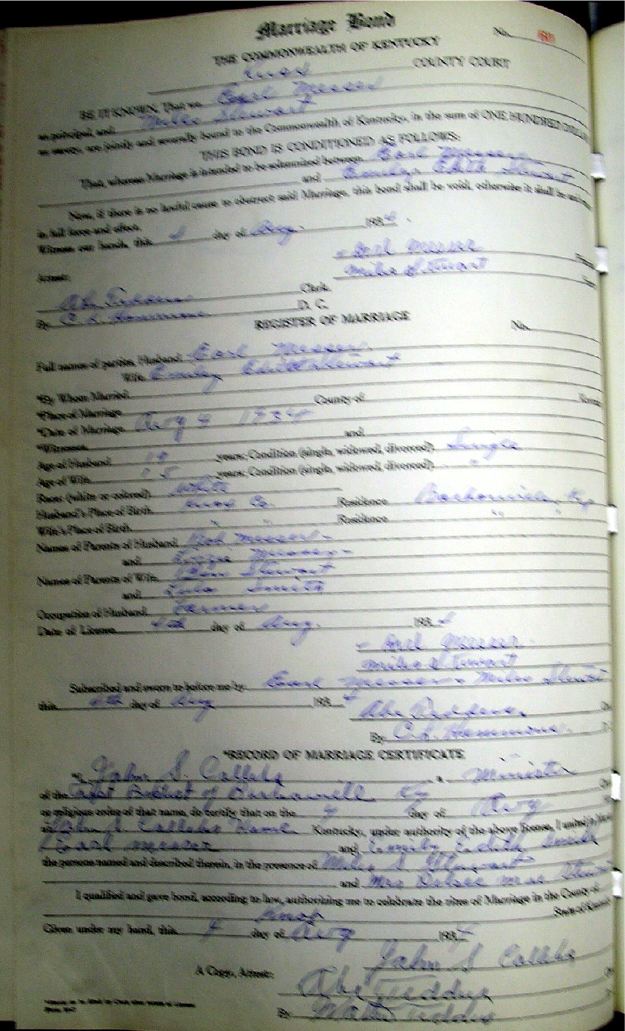 Marriage Bond
No.
THE COMMONWEALTH OF KENTUCKY
Knox COUNTY COURT
BE IT KNOWN, That we Earl Messer
as principal, and Miles Stewart
as surety, are jointly and severally bound to the Commonwealth of Kentucky, in the sum of ONE HUNDRED
THIS BOND IS CONDITIONED AS FOLLOWS:
That, whereas Marriage is intended to be solemnized between Earl Messer
and Emily Edith Stewart
Now, if there is no lawful cause to obstruct said Marriage, this bond shall be void, otherwise it shall be
in full force and effect.
Witness our hands, this 4 day of Aug. 1934.
Earl Messer
Miles Stewart
Attest:
Clerk.
By C. R. Hammons D. C.
REGISTER OF MARRIAGE
No.
Full names of parties, Husband Earl Messer
Wife Emily Edith Stewart
*By Whom Married
*Place of Marriage County of
*Date of Marriage Aug 4 1934
*Witnesses and
Age of Husband 19 years; Condition (single, widowed, divorced) Single
Age of Wife 15 years; Condition (single, widowed, divorced) "
Race (white or colored) White
Husband's Place of Birth Knox Co. Residence Barbourville, Ky
Wife's Place of Birth " " Residence " "
Names of Parents of Husband Bob Messer
and Messer
Names of Parents of Wife Stewart
and Smith
Occupation of Husband Farmer
Date of License 4th day of Aug. 1934
Earl Messer
Miles Stewart
Subscribed and sworn to before me by Earl Messer & Miles Stewart
this 4th day of Aug 1934
By C. R. Hammons
*RECORD OF MARRIAGE CERTIFICATE
*I, John S. Collebs a Minister
of the East Baptist of Ky
or religious order of that name, do certify that on the 4 day of Aug
at John S Collebs Home Kentucky, under authority of the above license, I united in
Earl Messer and Emily Edith
the persons named and described therein, in the presence of Miles S Stewart
and Mrs
I qualified and gave bond, according to law, authorizing me to celebrate the rites of Marriage in the County of
Knox State of
Given under my hand, this 4 day of Aug 1934
John S Collebs
A Copy, Attest:
Abe Tedders
By Tedders